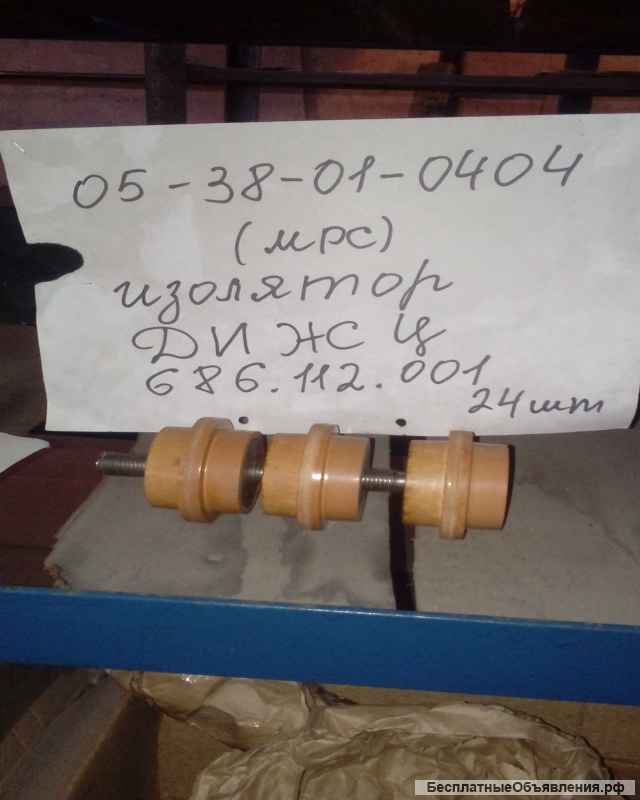 05-38-01-0404
(мрс)
изолятор
ДИЖСЦ
686.112.001
24шт
БесплатныеОбъявления.рф